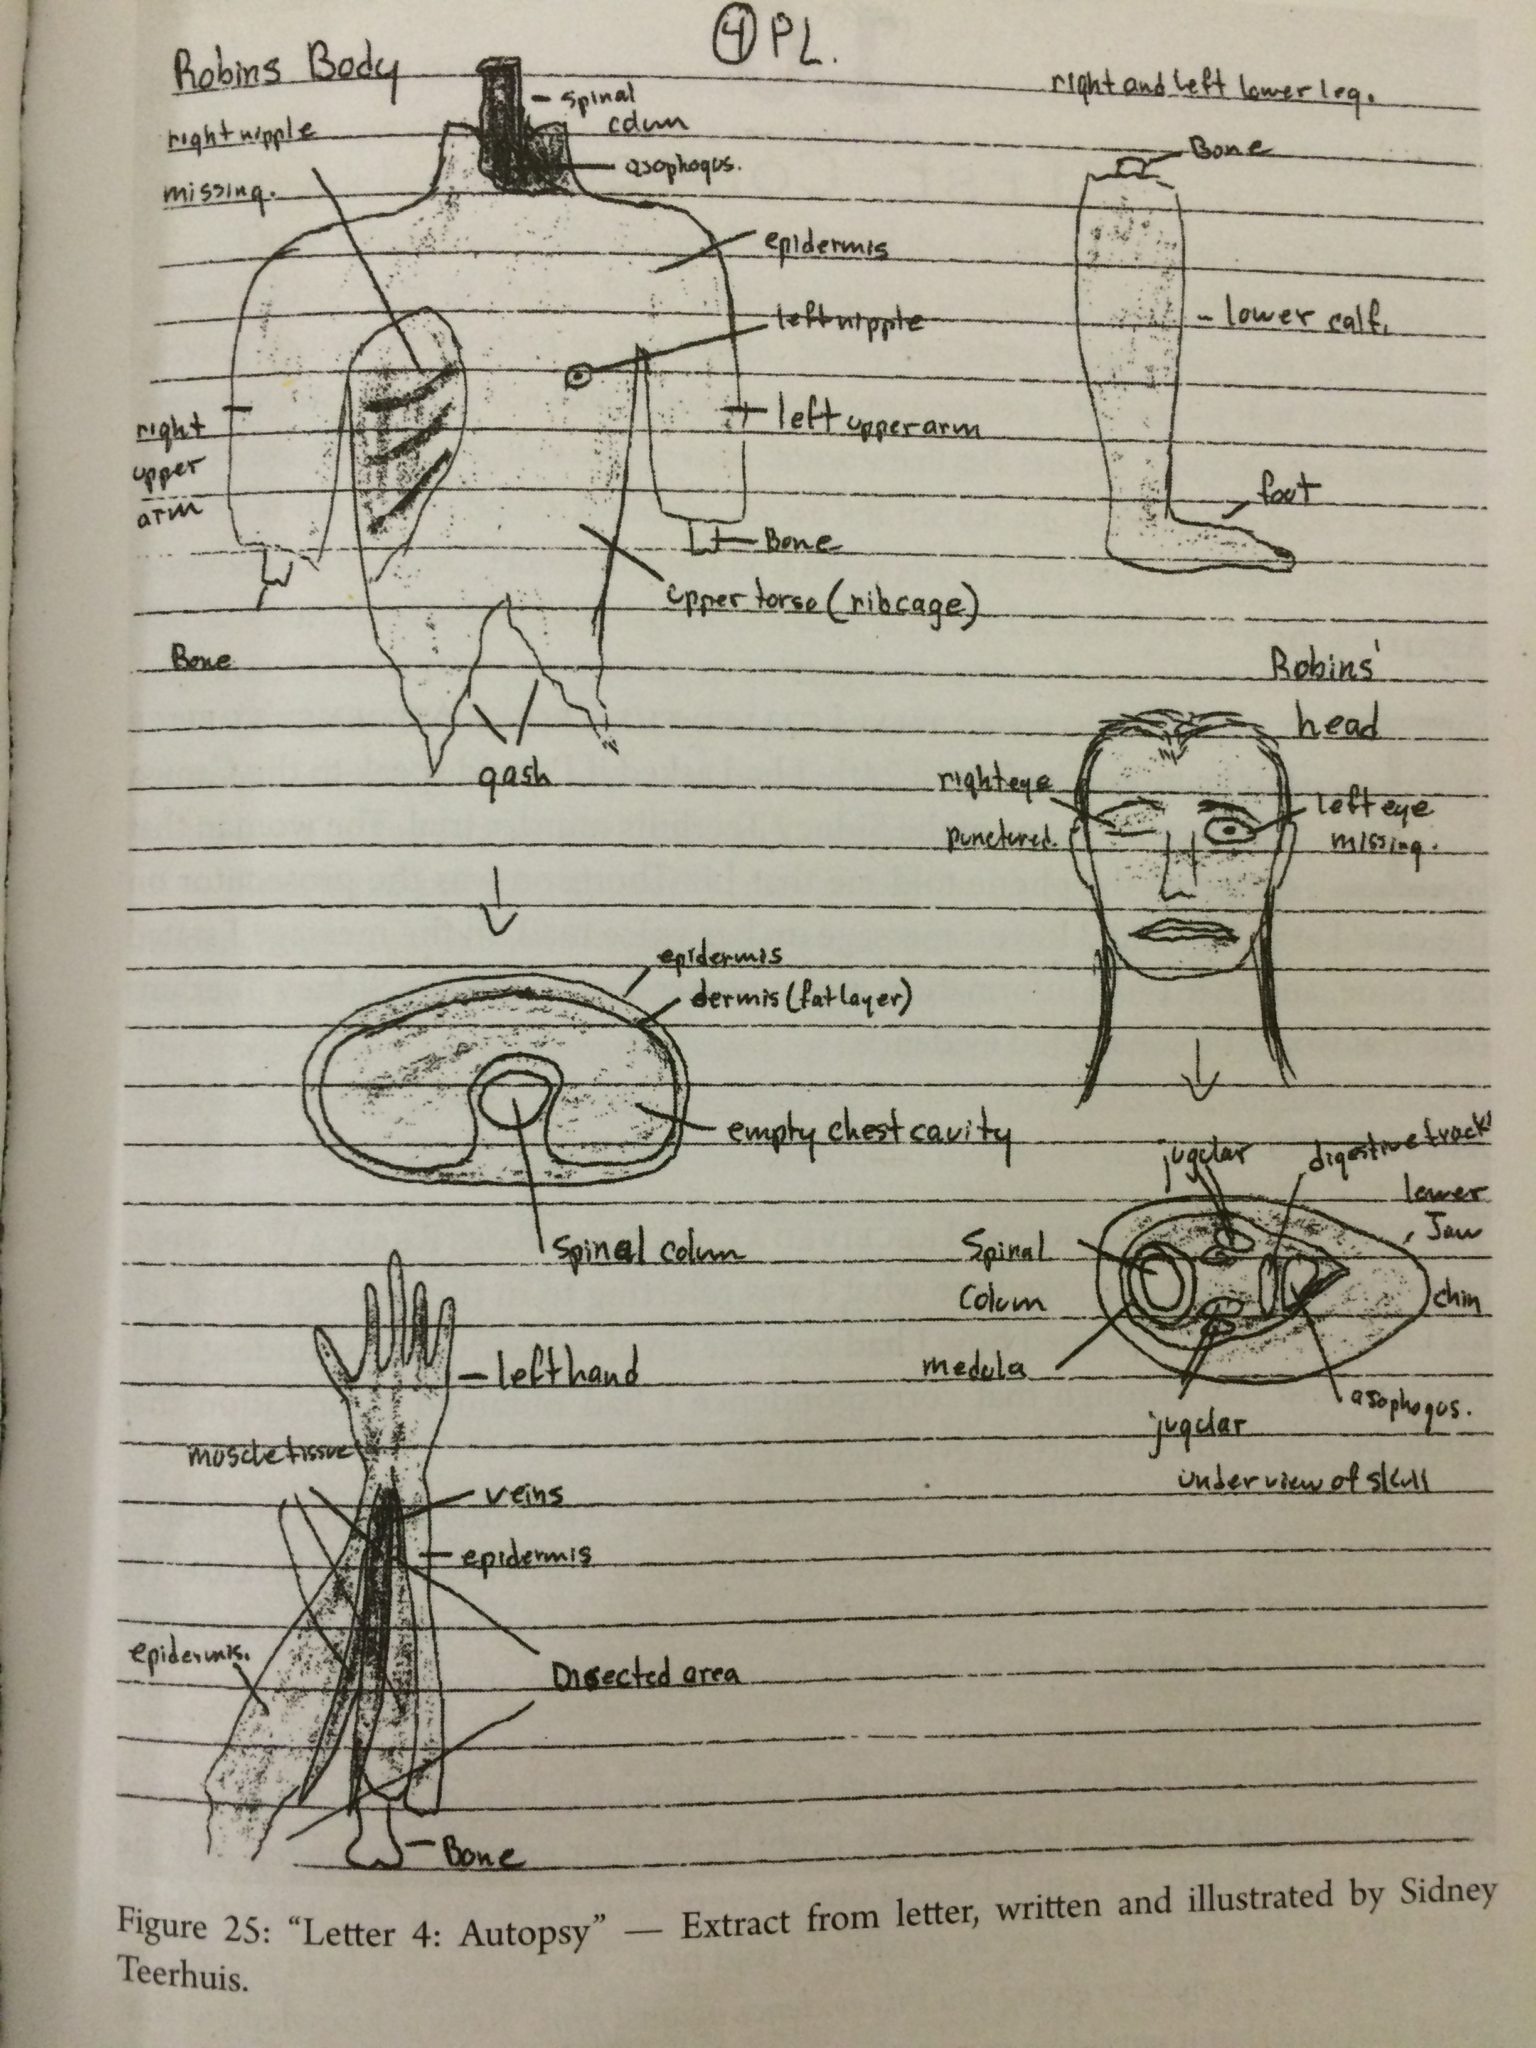 ④ PL.
Robins Body
spinal
colum
asophogus.
right nipple
missing.
epidermis
left nipple
right
upper
arm
left upper arm
Bone
upper torso (ribcage)
Bone
gash
right and left lower leg.
Bone
- lower calf.
foot
Robins'
head
right eye
punctured.
left eye
missing.
epidermis
dermis (fat layer)
empty chest cavity
Spinal colum
jugular
digestive track
lower
Jaw
Spinal
Colum
chin
medula
asophogus.
jugular
under view of skull
left hand
muscle tissue
veins
epidermis
epidermis.
Disected area
Bone
Figure 25: “Letter 4: Autopsy” — Extract from letter, written and illustrated by Sidney
Teerhuis.